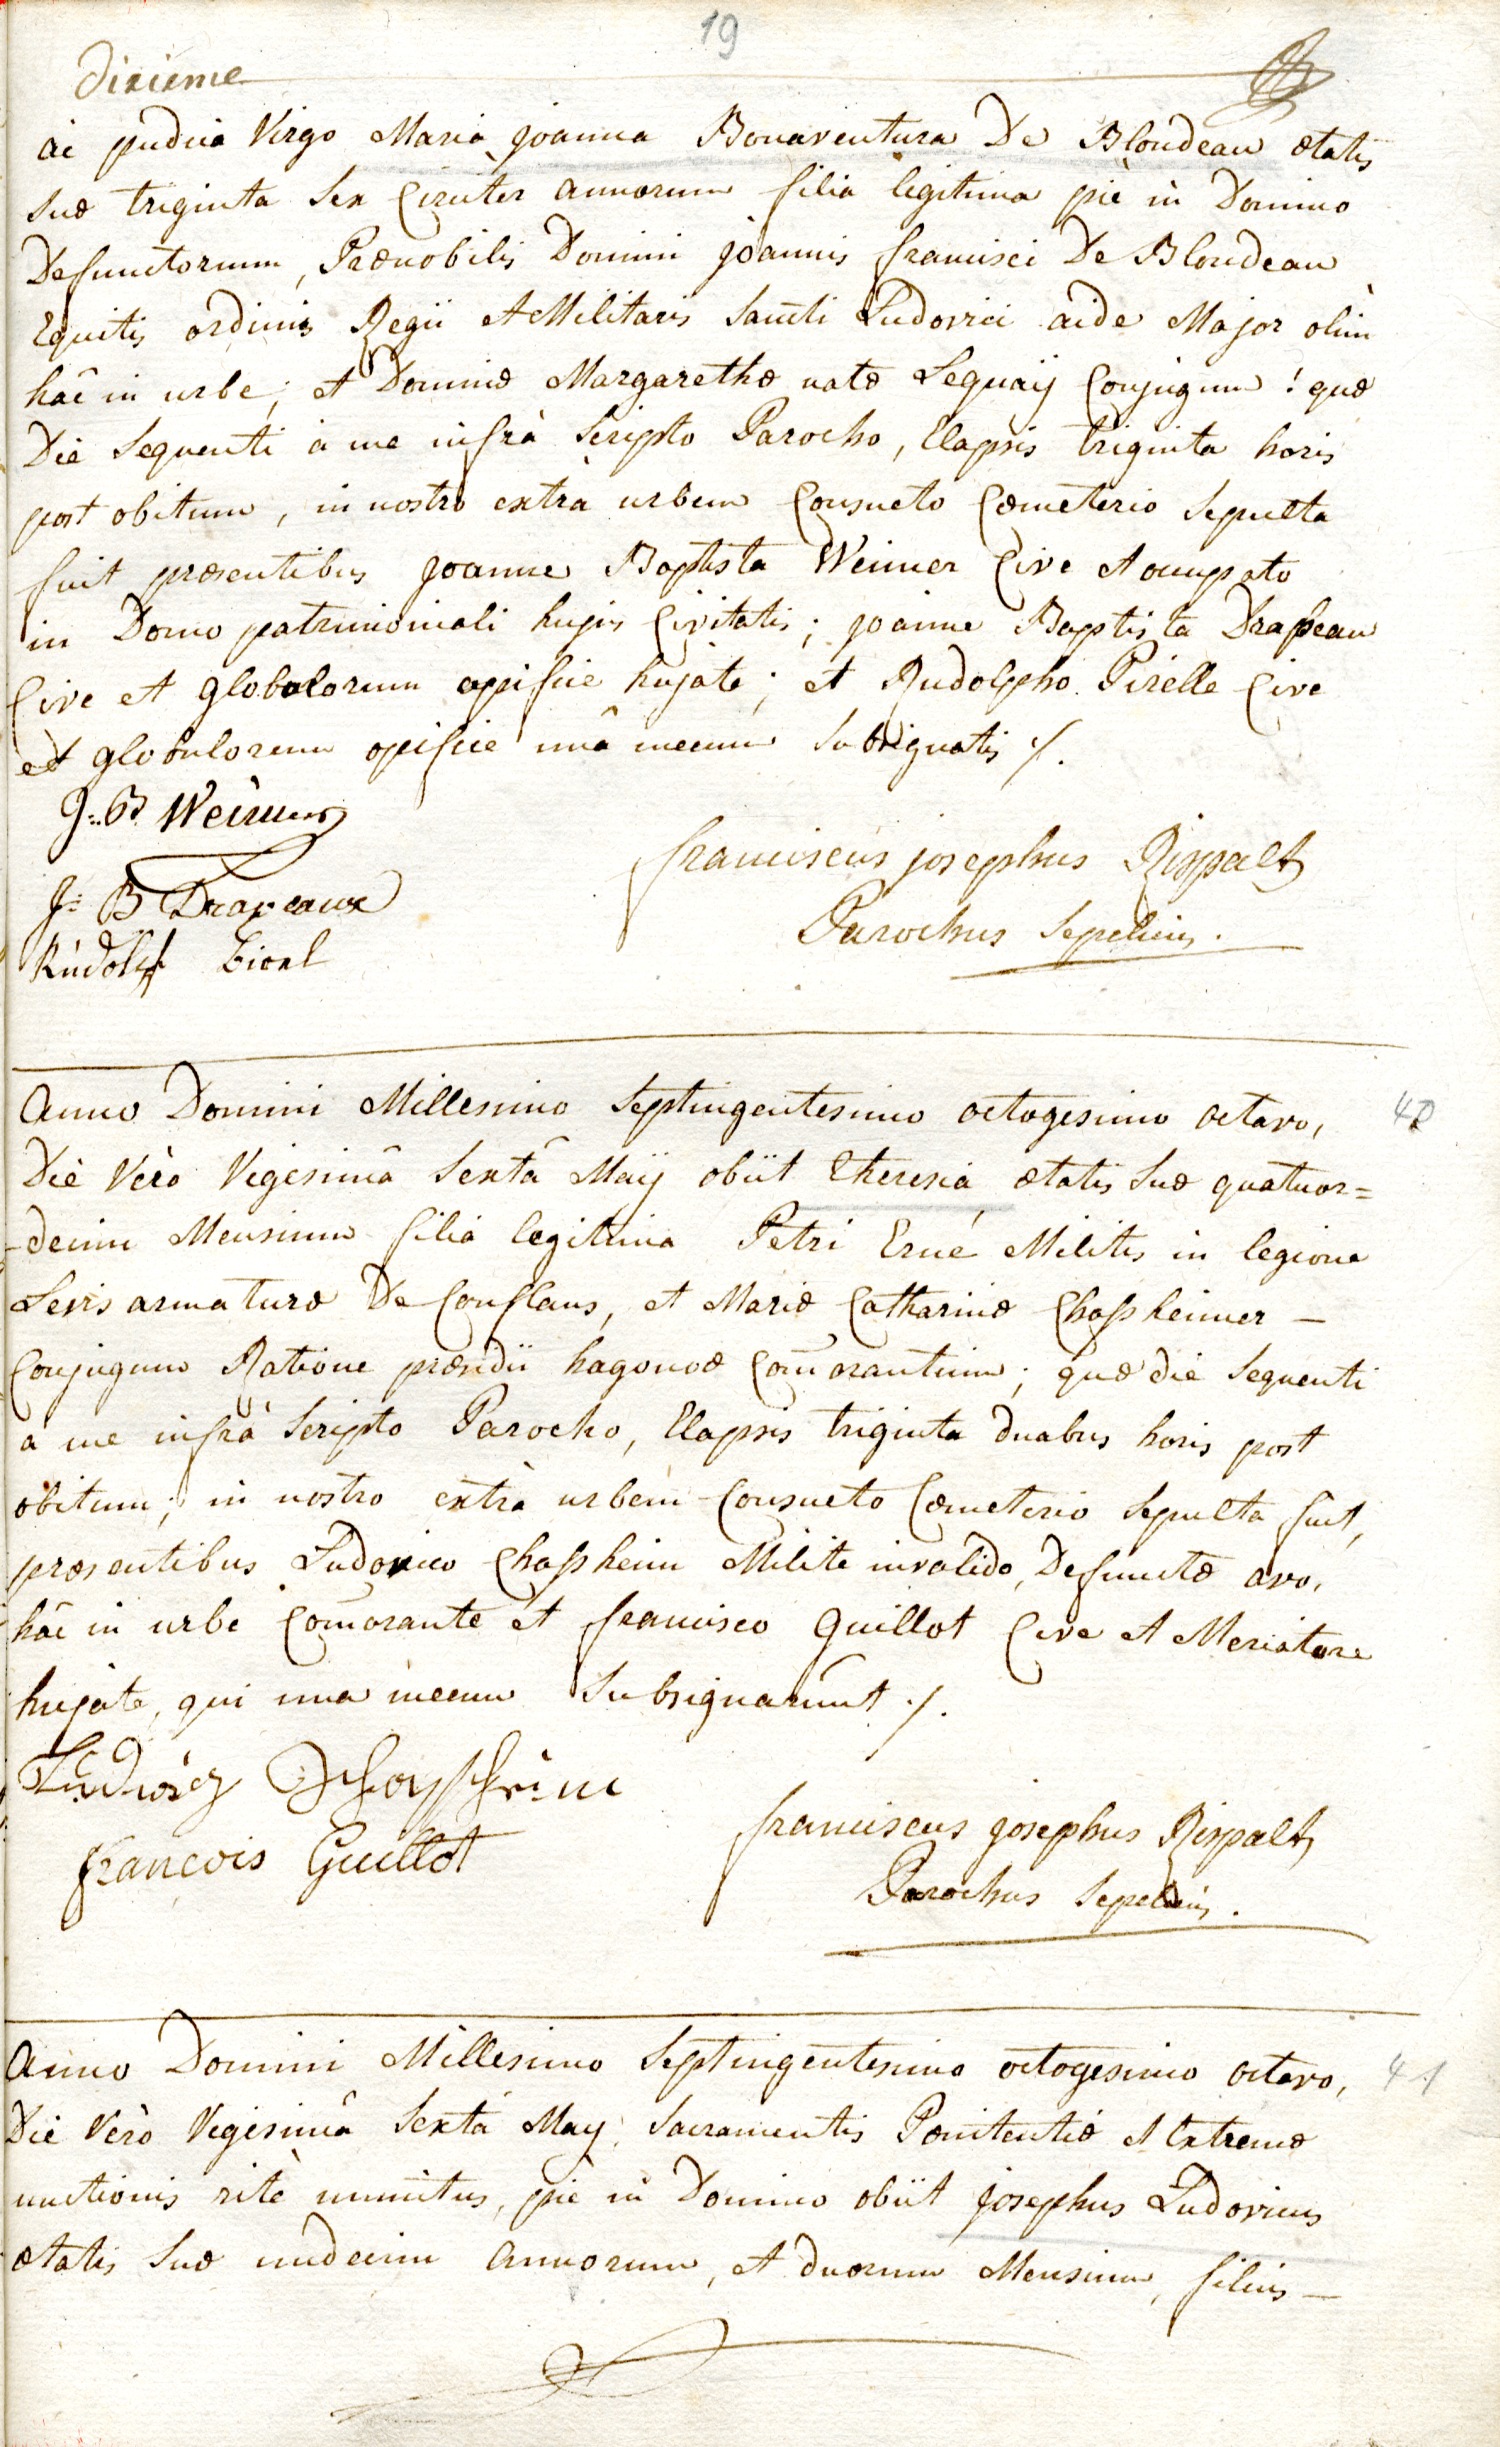 19
dixieme
ac pudica Virgo Maria Joanna Bonaventura De Blondeau ætatis
suæ triginta sex circiter annorum filia legitima piè in Domino
Defunctorum, Prænobilis Domini Joannis francisci De Blondeau
Equitis ordinis Regii et Militaris Sancti Ludovici aide Major olim
hâc in urbe, et Dominæ Margarethæ natæ Lequaij Conjugum! quæ
Die Sequenti à me infrà Scripto Parocho, Elapsis triginta horis
post obitum, in nostro extrà urbem Consueto Cœmeterio Sepulta
fuit præsentibus Joanne Baptista Weimer Cive et occupato
in Domo patrimoniali hujus Civitatis; Joanne Baptista Drapeau
Cive et globolorum opifice hujate; et Rudolpho Pirelle Cive
et globulorum opifice unâ mecum Subsignatis ./.
J: B Weimer
J: B Drapeaux
Rudolf
franciscus josephus Rispalt
Parochus Sepeliens.
Anno Domini Millesimo Septingentesimo octogesimo octavo, 40
Die Verò Vigesimâ Sextâ Maij obiit Theresia ætatis Suæ quatuor=
-decim Mensium filia legitima Petri Erné Militis in legione
Levis armaturæ De Conflans, et Mariæ Catharinæ Chaßheimer –
Conjugum Ratione præsidii hagonoæ Com̃orantium; quæ die Sequenti
a me infrà Scripto Parocho, Elapsis triginta duabus horis post
obitum; in nostro extrà urbem Consueto Cœmeterio Sepulta fuit,
præsentibus Ludovico Chaßheim Milite invalido, Defunctæ avo,
hâc in urbe Com̃orante et francisco Guillot Cive et Mercatore
hujate, qui una mecum Subsignarunt ./.
Ludwig Schaßheim
francois Guillot
franciscus Josephus Rispalt
Parochus Sepeliens.
Anno Domini Millesimo Septingentesimo octogesimo octavo, 41
Die Verò Vigesimâ Sextâ May Sacramentis Pœnitentiæ et Extremæ
unctionis ritè munitus, piè in Domino obiit Josephus Ludovicus
ætatis Suæ undecim Annorum, et duorum Mensium, filius –